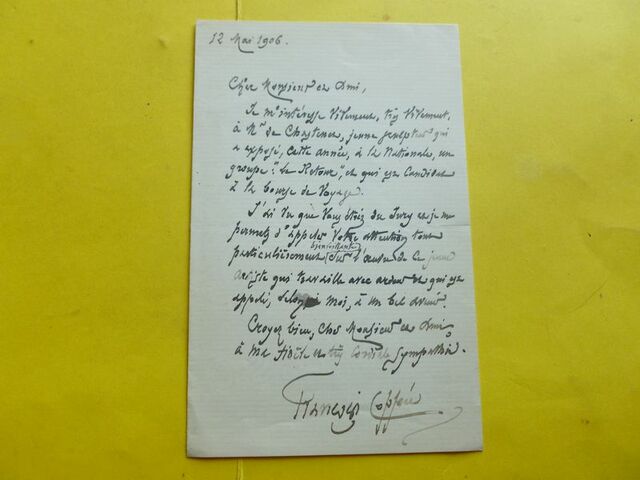 12 Mai 1906.
Cher Monsieur et Ami,
Je m'intéresse vivement, très vivement,
à Mr de Chastenet, jeune sculpteur qui
a exposé, cette année, à la Nationale, un
groupe: "Le Retour", et qui est candidat
à la bourse de Voyage.
J'ai vu que vous étiez du Jury et je me
permets d'appeler votre attention tout
particulièrement bienveillante sur l'œuvre de ce jeune
artiste qui travaille avec ardeur et qui est
appelé, selon moi, à un bel avenir.
Croyez bien, cher Monsieur et Ami,
à ma fidèle et très cordiale sympathie.
François Coppée